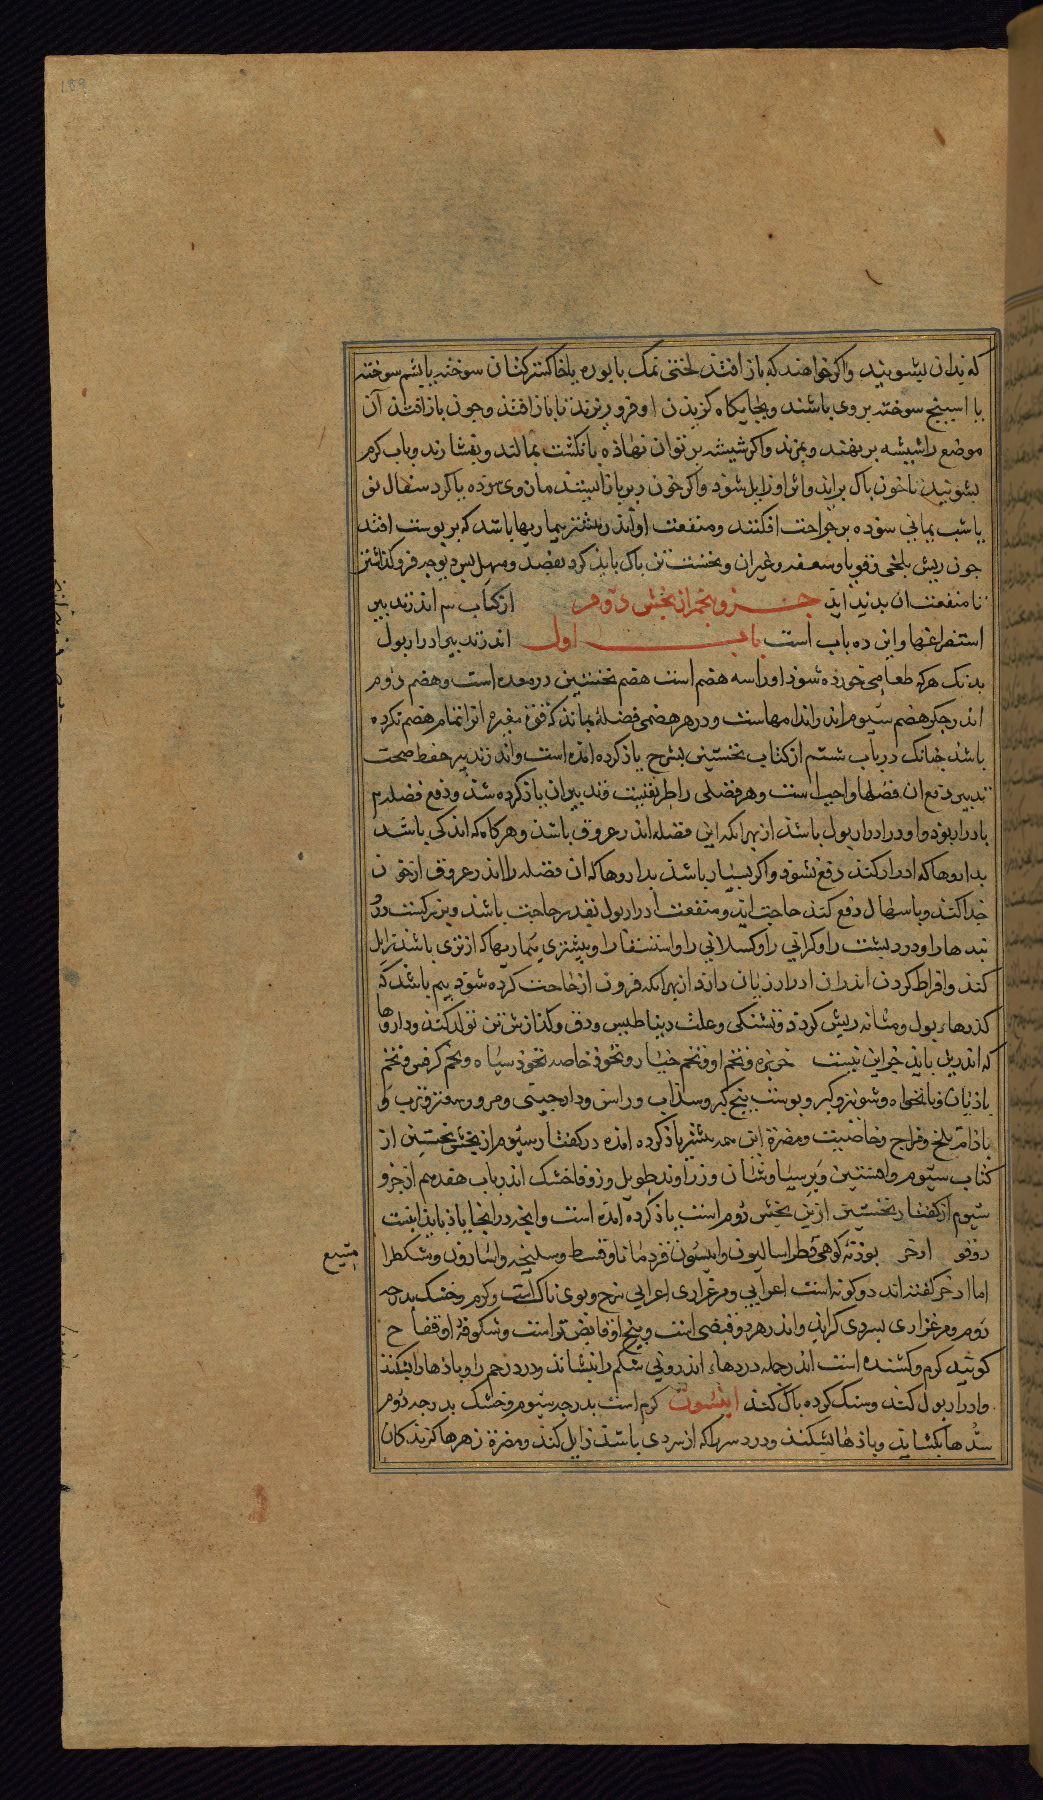 189
که بدان بشویند و اکر خواهند که باز افتد لختی نمک با بوره یا خاکستر کتان سوخته یا پشم سوخته
یا اسبنج سوخته بر وی باشند و بجایکاه کزیدن او فرو ریزند تا باز افتذ وجون باز افتذ آن
موضع را شیشه بر نهند و بمزند واکر شیشه بر نتوان نهاذه بانکشت بمالند و بفشارند و باب کرم
بشویند تا خون باک براید واثر او زایل شوذ واکر خون دیر باز ایستد مازوی سوده یا کرد سفال نو
یا شب یمانی سوده بر جراحت افکنند ومنفعت او اندر بیشتر بیماریها باشد که بر بوست افتد
جون ریش بلخی و قوبا و سعفه وغیر ان ونخست تن باک باید کرد بفصد ومسهل بس دیوجه فرو کذاشتن
تا منفعت ان بدید اید جزو بنجم از بخش دوم از کتاب سم اندر تدبیر
استفراغها واین ده باب است باب اول اندر تدبیر ادرار بول
بدانک هرکه طعامی خورده شوذ او را سه هضم است هضم نخستین در معده است وهضم دوم
اندر جکر وهضم سیوم اندر اندامهاست ودر هر هضمی فضلۀ بماند که قوة مغیره انرا تمام هضم نکرده
باشد جنانک در باب ششم از کتاب نخستین بشرح یاذ کرده امده است واندر تدبیر حفظ صحت
تدبیر دفع ان فضلها واجب است وهر فضلی را طریقیست وتدبیر ان یاذ کرده شد ودفع فضله
بادرار بوذ و ادرار بول باشذ از بهر انکه این فضله اندر عروق باشذ وهرکاه که اندکی باشد
بداروها که ادرار کند دفع شود واکر بسیار باشذ بداروها که ان فضله را اندر عروق از خون
جدا کند وباسهال دفع کند حاجت اید ومنفعت ادرار بول بقدر حاجت باشذ وبزرکیست درد
بندها را ودرد بشت را وکرانی را وکسلانی را واستسقا را وبیشتری بیماریها که از تری باشذ زایل
کند وافراط کردن اندر ان ادرار زیان دارد از بهر انکه فزون از حاجت کرده شود بیم باشد که
کذرهاء بول ومثانه ریش کردد وتشنکی وعلت دیابیطس ودق وکذازش تن تولد کند وداروها
که اندرین باید خیر این نیست خربزه وتخم او وتخم خیار ونخود خاصه نخود سیاه وتخم کرفس وتخم
باذیان ونانخواه وشونیز وکبر وبوست بیخ کبر وسذاب وراسن ودارجینی ومر وریوند وترب و
باذام تلخ ومزاج وخاصیت ومضرة این همه بیشتر یاذ کرده امده در کفتار سیوم از بخش نخستین از
کتاب سیوم وافسنتین وبرسیاوشان وزراوند طویل وزوفا خشک اندر باب هفدهم از جزو
سیوم از کفتار نخستین ازین بخش دوم است یاذ کرده آمده است وانجه در اینجا یاذ باید اینست
دوقو اذخر بوذنه کوهی فطراسالیون وانیسون قردمانا وقسط وسلیخه واسارون ومشکطرا
مشیع
اما اذخر کفته اند دو کونه است اعرابی ومرغزاری اعرابی سرخ وبوی ناک است وکرم وخشک بدرجه
دوم ومرغزاری بسردی کراید واندر هر دو قبضی است وبیخ او قابض تر است وشکوفۀ او فقاح
کویند کرم وکشنده است اندر جمله دردهاء اندرونی شکم را بنشاند ودرد رحم را وباذها را بشکند
وادرار بول کند وسنک کرده باک کند انیسون کرم است بدرجه سیوم وخشک بدرجه دوم
سدها بکشاید وباذها بشکند ودرد سر را که از سردی باشذ زایل کند ومضرة زهرها کزندکان